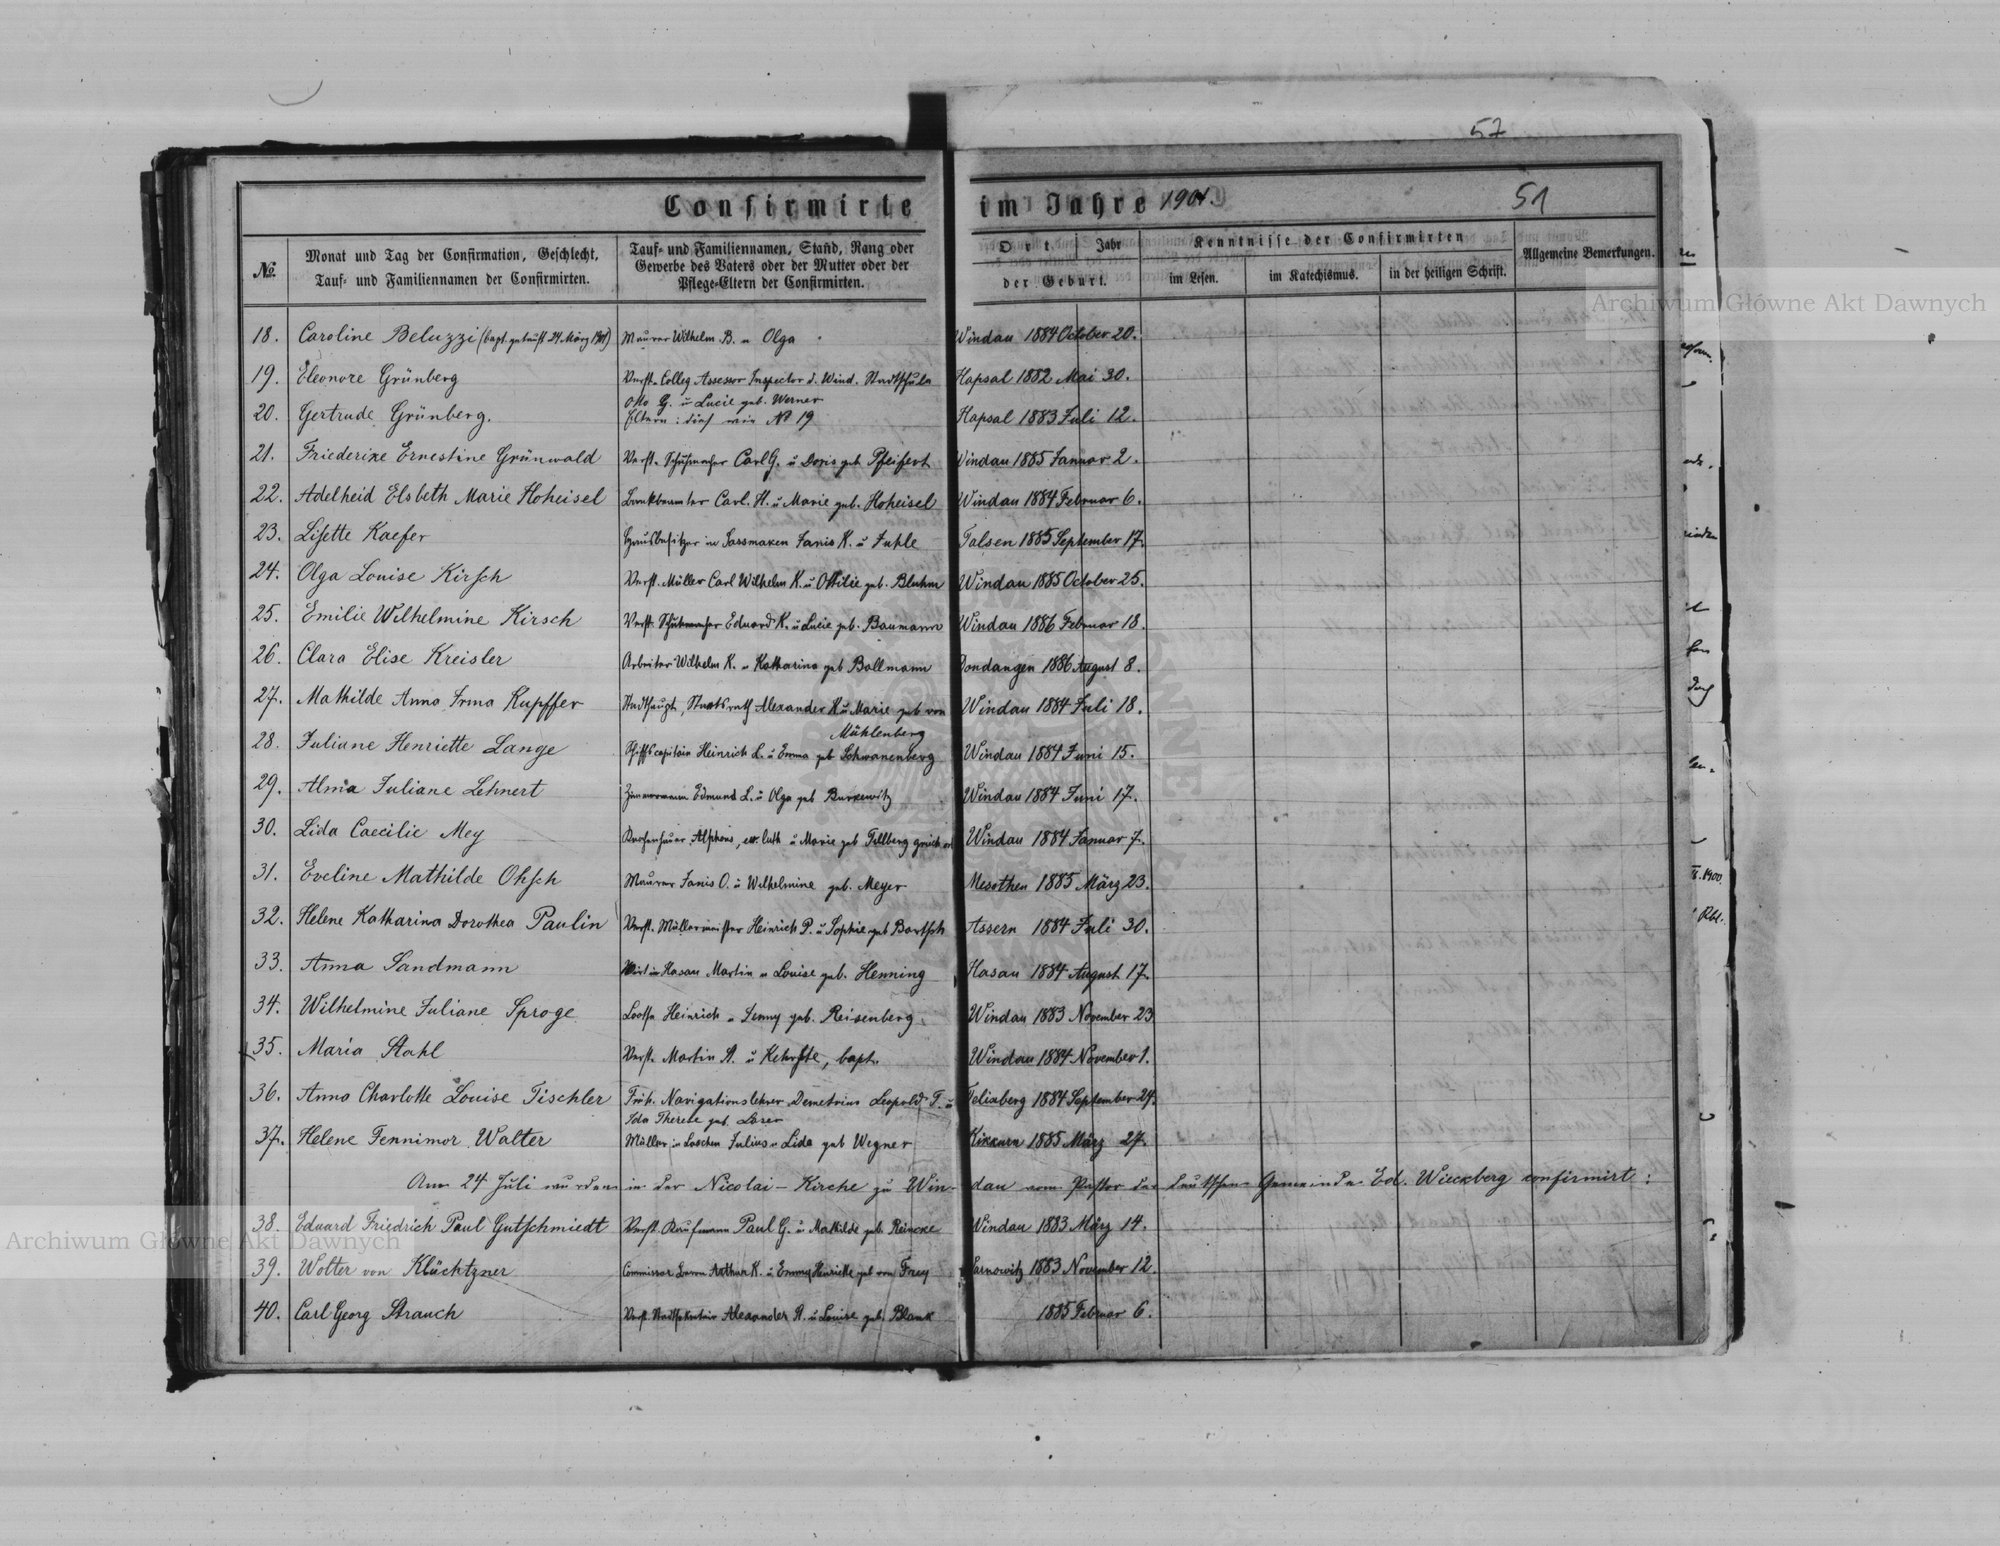 57
Confirmirte im Jahre 1901.
51
№
Monat und Tag der Confirmation, Geschlecht,
Tauf- und Familiennamen der Confirmirten.
Tauf- und Familiennamen, Stand, Rang oder
Gewerbe des Vaters oder der Mutter oder der
Pflege-Eltern der Confirmirten.
Ort Jahr
der Geburt.
Kenntnisse der Confirmirten
im Lesen. im Katechismus. in der heiligen Schrift.
Allgemeine Bemerkungen.
18. Caroline Beluzzi (bapt. getauft 24 März 1901) Maurer Wilhelm B. u Olga Windau 1884 October 20.
19. Eleonore Grünberg Verst. Colleg Assessor Inspector d. Wind. Stadtschule Hapsal 1882 Mai 30.
Otto G. u Lucie geb. Werner
20. Gertrude Grünberg. Eltern: dies wie № 19 Hapsal 1883 Juli 12.
21. Friederike Ernestine Grünwald Verst. Schuhmacher Carl G. u Doris geb Pfeifert Windau 1885 Januar 2.
22. Adelheid Elsbeth Marie Hoheisel Bankbeamter Carl. H. u Marie geb. Hoheisel Windau 1884 Februar 6.
23. Lisette Kaefer Hausbesitzer in Sassmaken Janis K. u Juhle Talsen 1885 September 17.
24. Olga Louise Kirsch Verst. Müller Carl Wilhelm K. u Ottilie geb. Bluhm Windau 1885 October 25.
25. Emilie Wilhelmine Kirsch Verst. Schuhmacher Eduard K. u Lucie geb. Baumann Windau 1886 Februar 18.
26. Clara Elise Kreisler Arbeiter Wilhelm K. u Katharina geb Bollmann Dondangen 1886 August 8.
27. Mathilde Anna Irma Kupffer Stadthaupt, Staatsrath Alexander K u Marie geb von Windau 1884 Juli 18.
Mühlenberg
28. Juliane Henriette Lange Schiffscapitain Heinrich L. u Emma geb Schwanenberg Windau 1884 Juni 15.
29. Alma Juliane Lehnert Zimmermann Edmund L. u Olga geb Burkewitz Windau 1884 Juni 17.
30. Lida Caecilie Mey Alphons, ev. luth u Marie geb Fellberg Windau 1884 Januar 7.
31. Eveline Mathilde Ohsch Maurer Janis O. u Wilhelmine geb. Meyer Mesothen 1885 März 23.
32. Helene Katharina Dorothea Paulin Verst. Müllermeister Heinrich P. u Sophie geb Bartsch Assern 1884 Juli 30.
33. Anna Sandmann Wirt in Hasau Martin u Louise geb. Henning Hasau 1884 August 17.
34. Wilhelmine Juliane Sproge Lootse Heinrich u Jenny geb. Reisenberg Windau 1883 November 23
35. Maria Stahl Verst. Martin St. u Kehrste, bapt. Windau 1884 November 1.
36. Anna Charlotte Louise Tischler Früh. Navigationslehrer Demetrius Leopold T. u Felixberg 1884 September 24.
Ida Therese geb. Loser
37. Helene Fennimor Walter Müller in Loschen Julius u Lida geb Wegner Kikkurn 1885 März 27.
Am 24 Juli wurden in der Nicolai-Kirche zu Windau vom Pastor der deutschen Gemeinde Ed. Wieckberg confirmirt:
38. Eduard Friedrich Paul Gutschmiedt Verst. Kaufmann Paul G. u Mathilde geb. Reincke Windau 1883 März 14.
39. Wolter von Klüchtzner Commissar Baron Arthur K. u Emmy Henriette geb von Frey 1883 November 12.
40. Carl Georg Strauch Verst. Stadtsekretair Alexander St. u Louise geb. Blank 1885 Februar 6.
Archiwum Główne Akt Dawnych
Archiwum Główne Akt Dawnych